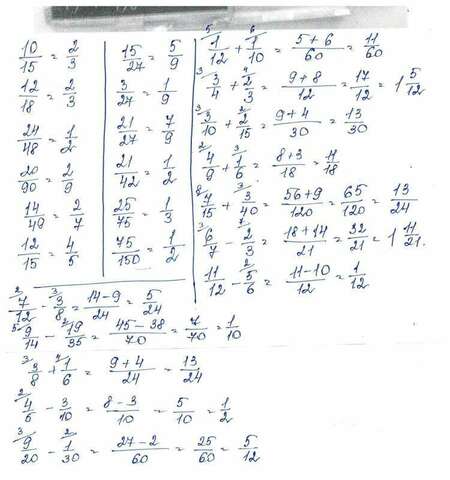 10/15 = 2/3
12/18 = 2/3
24/48 = 1/2
20/90 = 2/9
14/49 = 2/7
12/15 = 4/5
15/27 = 5/9
3/27 = 1/9
21/27 = 7/9
21/42 = 1/2
25/75 = 1/3
75/150 = 1/2
⁵1/12 + ⁶1/10 = (5+6)/60 = 11/60
³3/4 + ⁴2/3 = (9+8)/12 = 17/12 = 1 5/12
³3/10 + ²2/15 = (9+4)/30 = 13/30
²4/9 + ³1/6 = (8+3)/18 = 11/18
⁸7/15 + ³3/40 = (56+9)/120 = 65/120 = 13/24
³6/7 - ⁷2/3 = (18+14)/21 = 32/21 = 1 11/21.
11/12 - ²5/6 = (11-10)/12 = 1/12
²7/12 - ³3/8 = (14-9)/24 = 5/24
⁵9/14 - ²19/35 = (45-38)/70 = 7/70 = 1/10
³3/8 + ⁴1/6 = (9+4)/24 = 13/24
²4/5 - 3/10 = (8-3)/10 = 5/10 = 1/2
³9/20 - ²1/30 = (27-2)/60 = 25/60 = 5/12